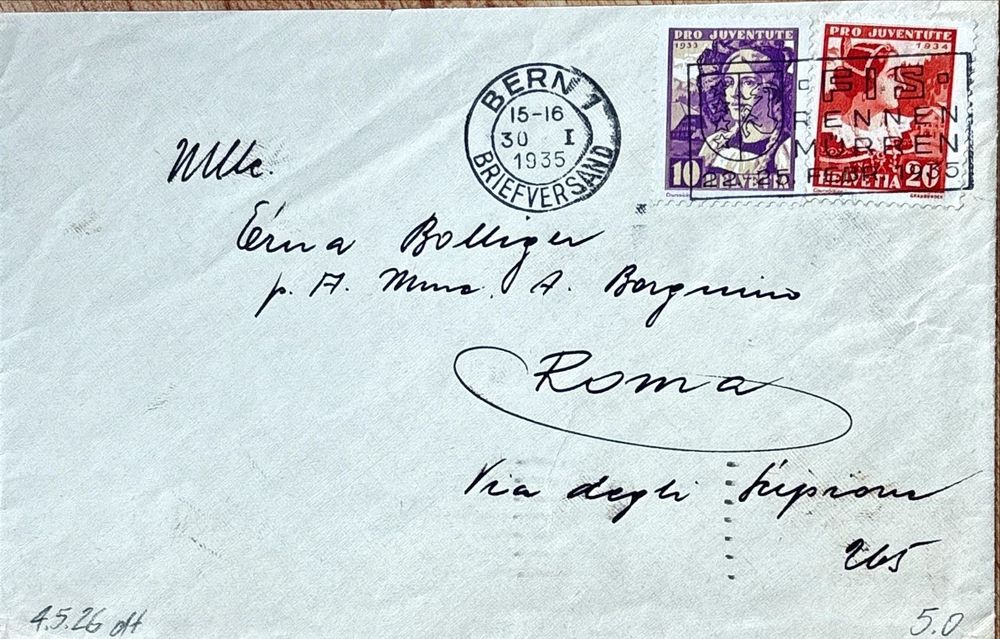 PRO JUVENTUTE
1933
10 HELVETIA
PRO JUVENTUTE
1934
HELVETIA 20
BERN 1
15-16
30 I
1935
BRIEFVERSAND
FIS-
RENNEN
MÜRREN
22-25. FEBR. 1935
Mlle.
Erna Bolliger
p. A. A. Borgnino
Roma
Via degli Scipioni
265
4.5.26
5.0